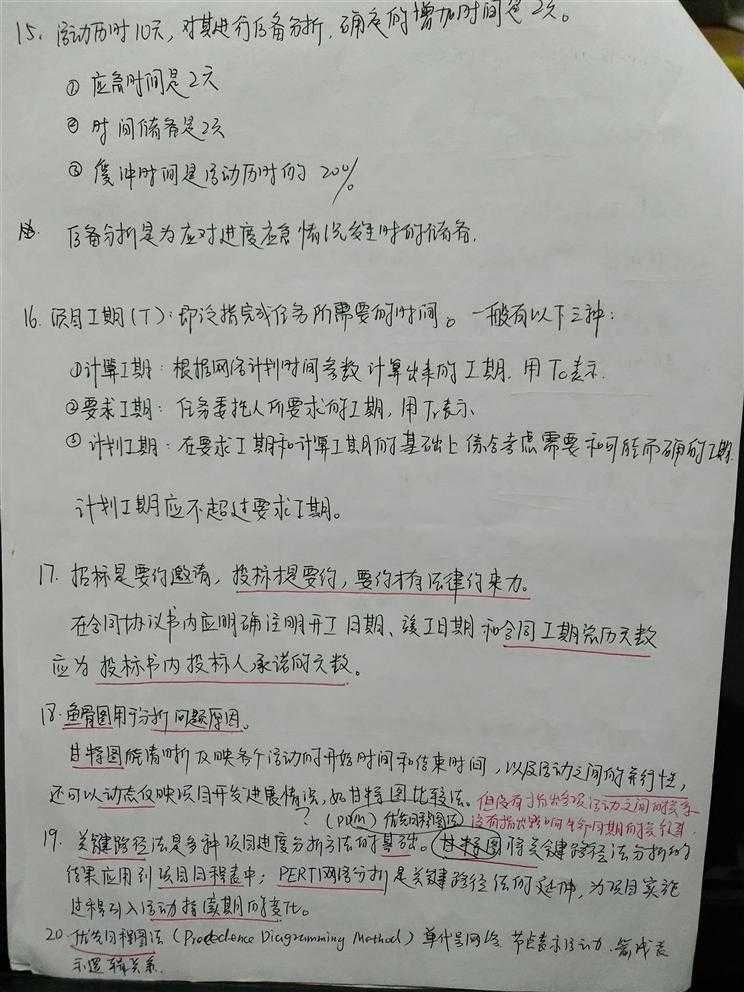 15. 活动历时10天，对其进行后备分析，确定的增加时间是2天。
① 应急时间是2天
② 时间储备是2天
③ 缓冲时间是活动历时的20%
后备分析是为应对进度应急情况发生时的储备.
16. 项目工期(T)：即泛指完成任务所需要的时间。一般有以下三种：
①计算工期：根据网络计划时间参数计算出来的工期. 用Tc表示.
②要求工期：任务委托人所要求的工期，用Tr表示.
③计划工期：在要求工期和计算工期的基础上综合考虑需要和可能而确的工期.
计划工期应不超过要求工期。
17. 招标是要约邀请，投标才是要约，要约才有法律约束力。
在合同协议书内应明确注明开工日期、竣工日期和合同工期总历天数
应为投标书内投标人承诺的天数。
18. 鱼骨图用于分析问题原因。
甘特图能清晰反映各个活动的开始时间和结束时间，以及活动之间的并行性，
还可以动态反映项目开发进展情况，如甘特图比较法。但没有指出各项活动之间的关系
? (PDM) 优先日程图法) 没有指出影响生命周期的关键
19. 关键路径法是多种项目进度分析方法的基础。甘特图将关键路径法分析的
结果应用到项目日程表中；PERT网络分析是关键路径法的延伸，为项目实施
过程引入活动持续期的变化。
20. 优先日程图法 (Precedence Diagramming Method) 单代号网络. 节点表示活动. 箭线表
示逻辑关系.